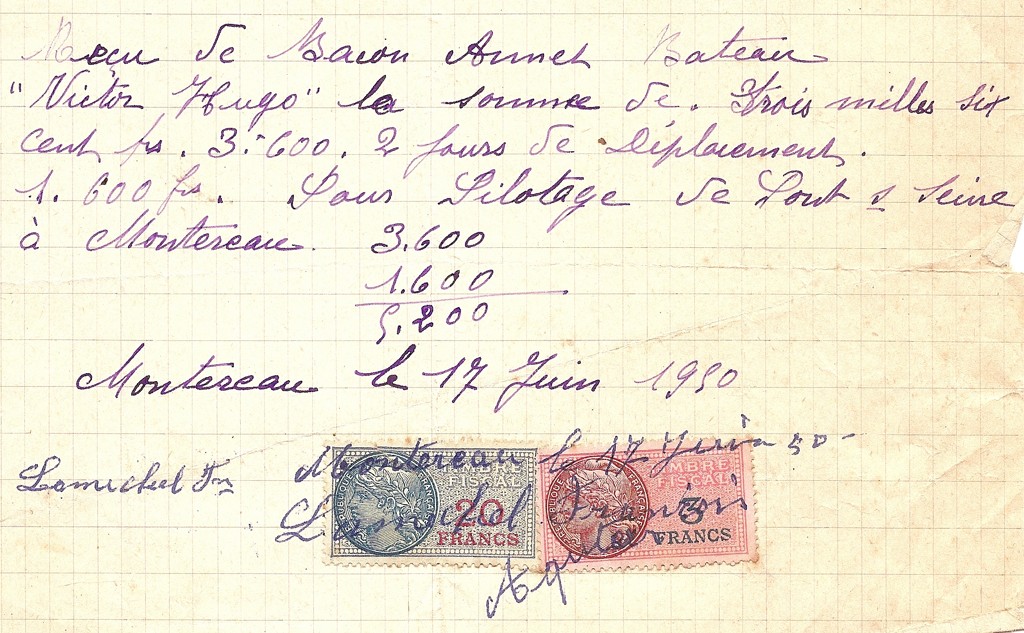 Reçu de Bacon Annet Bateau
"Victor Hugo" la somme de. Trois milles six
cent frs. 3.600. 2 Jours de Déplacement.
1.600 frs. Pour Pilotage de Pont s Seine
à Montereau. 3.600
1.600
5.200
Montereau le 17 Juin 1950
Montereau le 17 Juin 50-
TIMBRE FISCAL
TIMBRE FISCAL
REPUBLIQUE FRANÇAISE
REPUBLIQUE FRANÇAISE
20 FRANCS
3 FRANCS
François